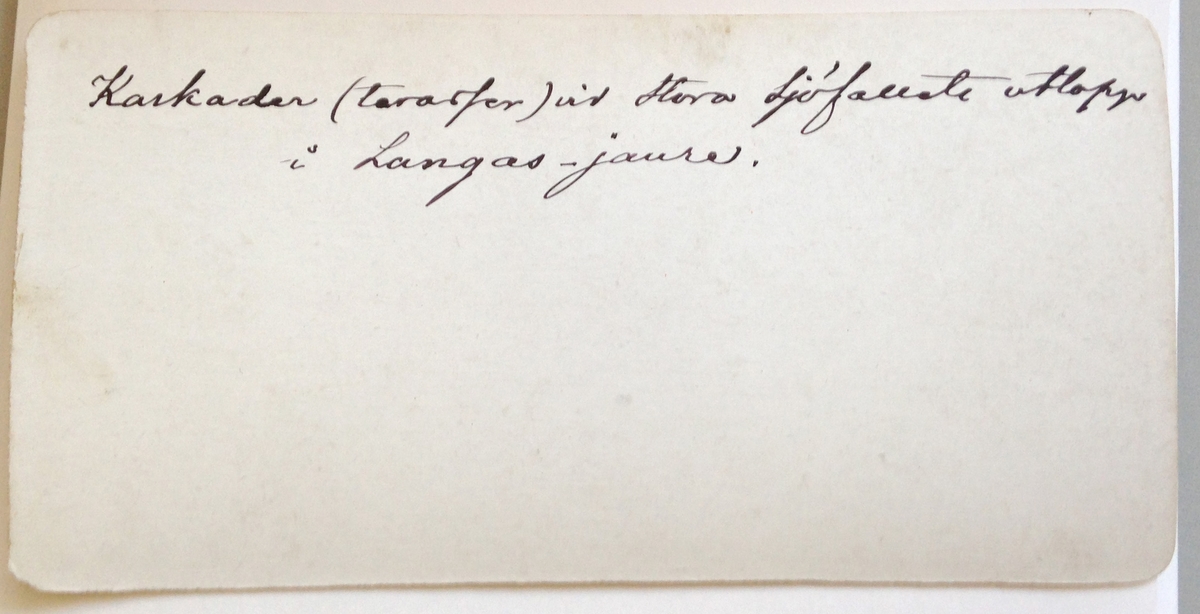 Kaskader (terasser) vid Stora Sjöfallets utlopp
i Langas-jaure.